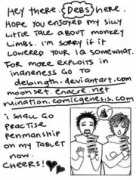 Hey there DEBS here.
Hope you enjoyed my silly
little tale about monkey
limbs. I'm sorry if it
lowered your IQ somewhat.
For more exploits in
inaneness go to
debsingth.deviantart.com
moonset.enacre.net
ruination.comicgenesis.com
I shall go
practise
penmanship
on my tablet
now.
Cheers!